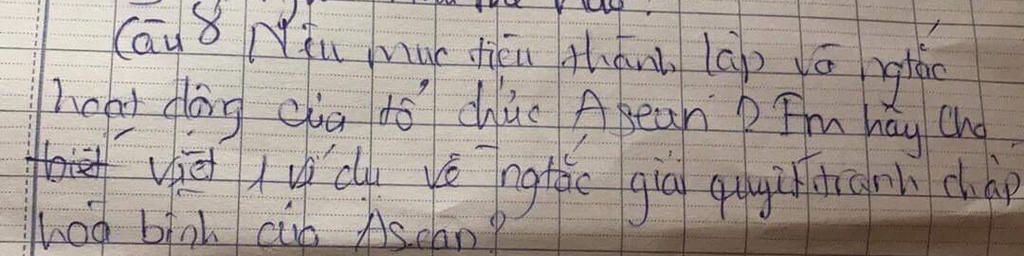 Câu 8 Nêu mục tiêu thành lập và ngtắc
hoạt động của tổ chức Asean? Em hãy cho
biết viết 1 ví dụ về ngtắc giải quyết tranh chấp
hoà bình của Asean?